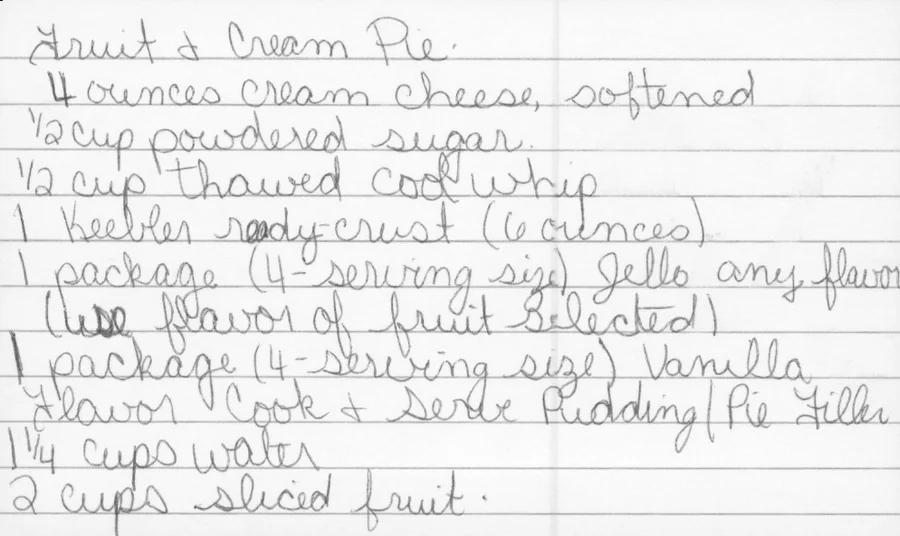 Fruit & Cream Pie.
4 ounces cream cheese, softened
1/2 cup powdered sugar.
1/2 cup thawed cool whip
1 Keebler ready-crust (6 ounces)
1 package (4-serving size) Jello any flavor
(use flavor of fruit selected)
1 package (4-serving size) Vanilla
Flavor Cook & Serve Pudding/Pie Filler
1 1/4 cups water
2 cups sliced fruit.